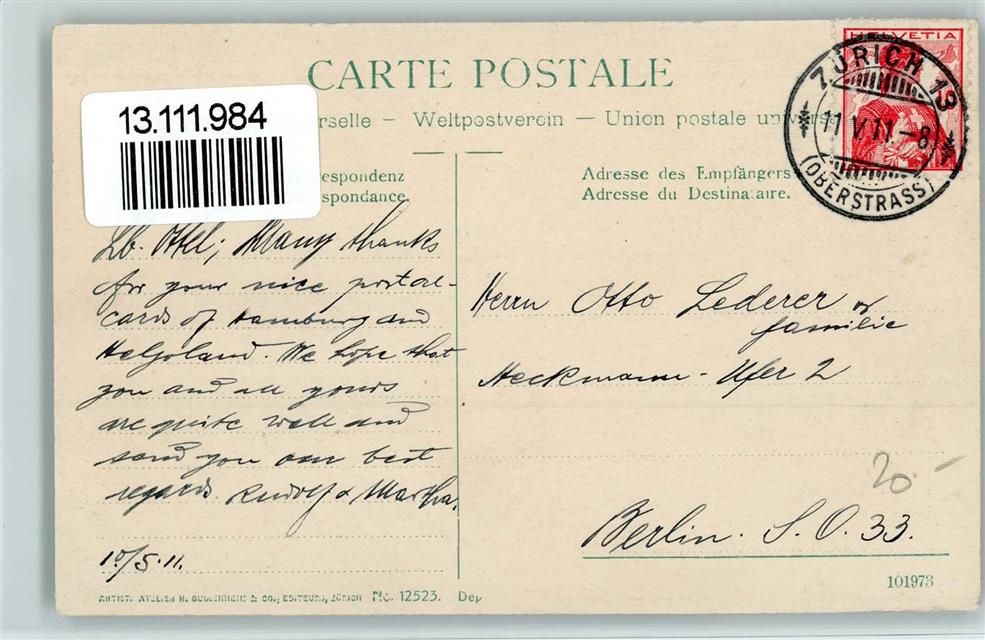 CARTE POSTALE
13.111.984
erselle – Weltpostverein – Union postale univers
respondenz
spondance.
Adresse des Empfängers
Adresse du Destinataire.
HELVETIA
ZÜRICH 13
11 V 11.-8
(OBERSTRASS)
Lb. Ottel; Many thanks
for your nice postal-
cards of Hamburg and
Helgoland. We hope that
you and all yours
are quite well and
send you our best
regards Rudolf & Martha.
10/5.11.
Herrn Otto Lederer &
familie
Heckmann-Ufer 2
Berlin. S. O. 33.
20.-
101973
ARTIST. ATELIER H. GUGGENHEIM & CO., EDITEURS, ZÜRICH No. 12523. Dep